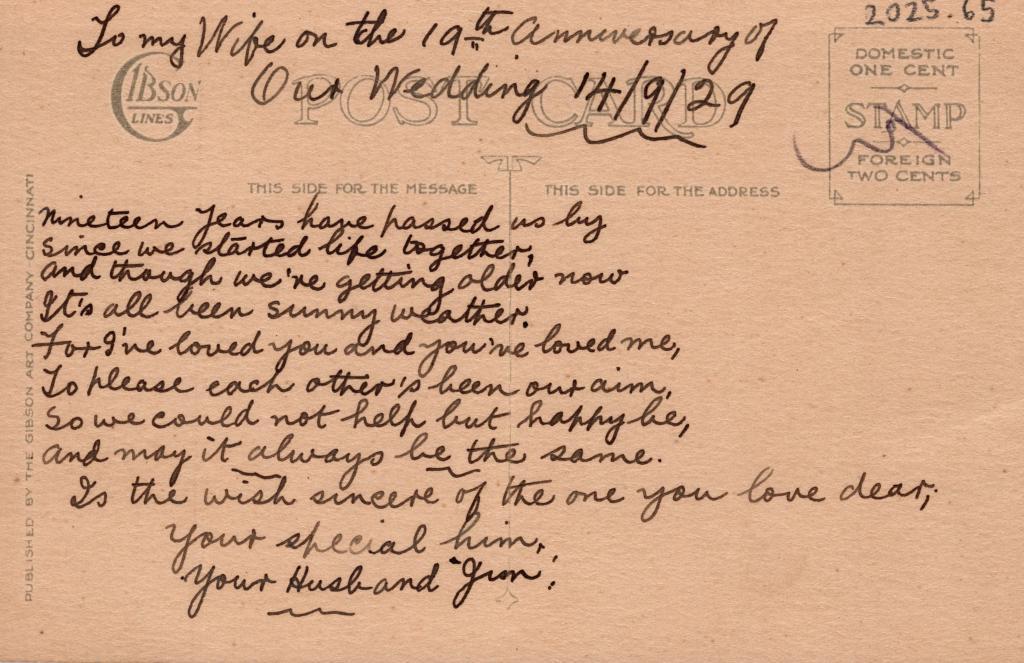 2025.65
To my Wife on the 19th Anniversary of
Our Wedding 14/9/29
GIBSON
LINES
POST CARD
DOMESTIC
ONE CENT
STAMP
FOREIGN
TWO CENTS
THIS SIDE FOR THE MESSAGE
THIS SIDE FOR THE ADDRESS
PUBLISHED BY THE GIBSON ART COMPANY CINCINNATI
Nineteen Years have passed us by
Since we started life together,
and though we're getting older now
It's all been sunny weather.
For I've loved you and you've loved me,
To please each other's been our aim,
So we could not help but happy be,
and may it always be the same.
Is the wish sincere of the one you love dear,
Your special him,
Your Husband "Jim".